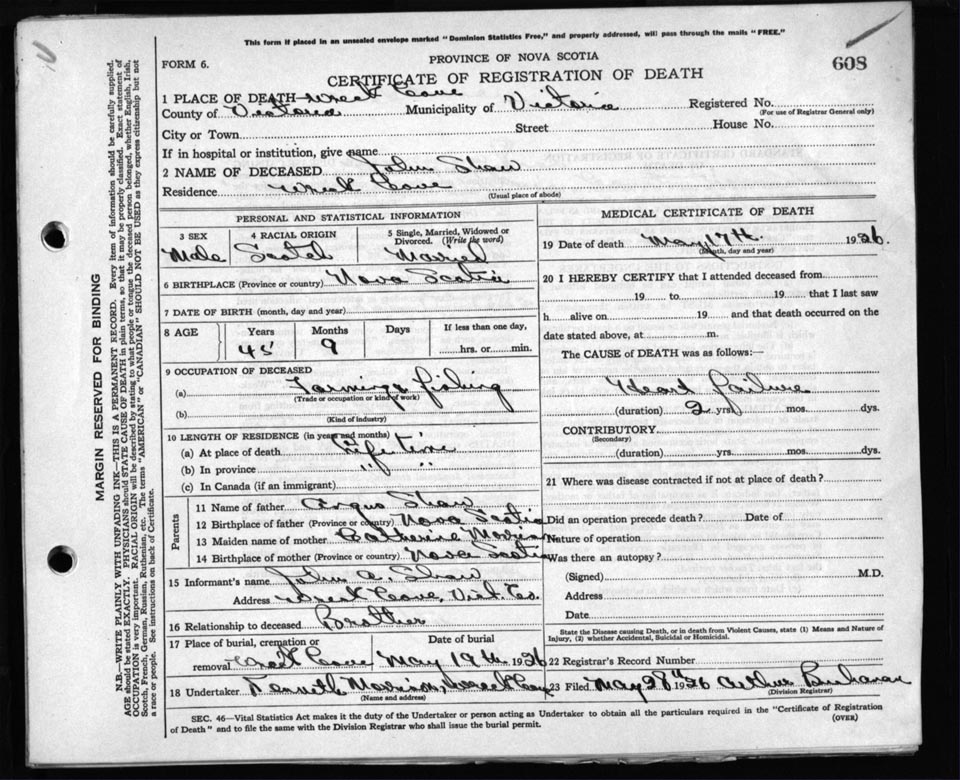 This form if placed in an unsealed envelope marked "Dominion Statistics Free," and properly addressed, will pass through the mails "FREE."
FORM 6.
PROVINCE OF NOVA SCOTIA
608
CERTIFICATE OF REGISTRATION OF DEATH
1 PLACE OF DEATH—Wreck Cove
County of Victoria Municipality of Victoria Registered No.
(For use of Registrar General only)
City or Town Street House No.
If in hospital or institution, give name
2 NAME OF DECEASED John Shaw
Residence Wreck Cove
(Usual place of abode)
PERSONAL AND STATISTICAL INFORMATION
3 SEX 4 RACIAL ORIGIN 5 Single, Married, Widowed or Divorced. (Write the word)
Male Scotch Married
6 BIRTHPLACE (Province or country) Nova Scotia
7 DATE OF BIRTH (month, day and year)
8 AGE Years Months Days If less than one day,
45 9 hrs. or min.
9 OCCUPATION OF DECEASED
(a) Farming & fishing
(Trade or occupation or kind of work)
(b)
(Kind of industry)
10 LENGTH OF RESIDENCE (in years and months)
(a) At place of death Life time
(b) In province " "
(c) In Canada (if an immigrant)
Parents
11 Name of father Angus Shaw
12 Birthplace of father (Province or country) Nova Scotia
13 Maiden name of mother Catherine Morrison
14 Birthplace of mother (Province or country) Nova Scotia
15 Informant's name John A. Shaw
Address Wreck Cove, Vict. Co.
16 Relationship to deceased Brother
17 Place of burial, cremation or removal Date of burial
Wreck Cove May 19th 1926
18 Undertaker Kenneth Morrison, Wreck Cove
(Name and address)
MEDICAL CERTIFICATE OF DEATH
19 Date of death May 17th. 1926.
(Month, day and year)
20 I HEREBY CERTIFY that I attended deceased from
19 to 19 that I last saw
h alive on 19 and that death occurred on the
date stated above, at m.
The CAUSE of DEATH was as follows:—
Heart failure
(duration) 2 yrs. mos. dys.
CONTRIBUTORY
(Secondary)
(duration) yrs. mos. dys.
21 Where was disease contracted if not at place of death?
Did an operation precede death? Date of
Nature of operation
Was there an autopsy?
(Signed) M.D.
Address
Date
State the Disease causing Death, or in death from Violent Causes, state (1) Means and Nature of
Injury, (2) whether Accidental, Suicidal or Homicidal.
22 Registrar's Record Number
23 Filed May 28th 1926 Arthur Buchanan
(Division Registrar)
SEC. 46—Vital Statistics Act makes it the duty of the Undertaker or person acting as Undertaker to obtain all the particulars required in the "Certificate of Registration
of Death" and to file the same with the Division Registrar who shall issue the burial permit.
(OVER)
MARGIN RESERVED FOR BINDING
N.B.—WRITE PLAINLY WITH UNFADING INK—THIS IS A PERMANENT RECORD. Every item of information should be carefully supplied.
AGE should be stated EXACTLY. PHYSICIANS should STATE CAUSE OF DEATH in plain terms, so that it may be properly classified. Exact statement of
OCCUPATION is very important. RACIAL ORIGIN will be described by stating to what people or tongue the deceased person belonged, whether English, Irish,
Scotch, French, German, Russian, Ruthenian, etc. The terms "AMERICAN" or "CANADIAN" SHOULD NOT BE USED as they express citizenship but not
a race or people. See instructions on back of Certificate.